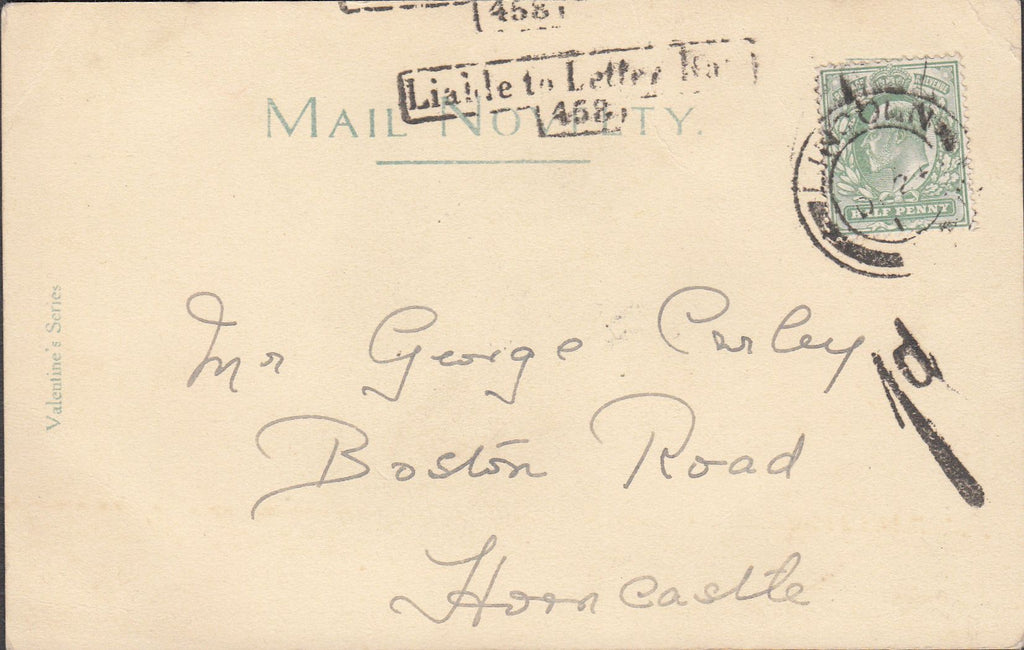 458
Liable to Letter
458
MAIL NOVELTY.
LINCOLN
HALF PENNY
1d
Valentine's Series
Mr George
Boston Road
Horncastle